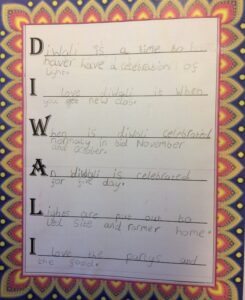 Diwali is a time to
hawer have a celebration of
light.
I love diwali it when
you get new
When is diwali celebrated
normaly in bid November
and october.
An diwali is celebrated
for five day.
Lights are put out to
sits and rarmer home.
I love the partys and
the food.